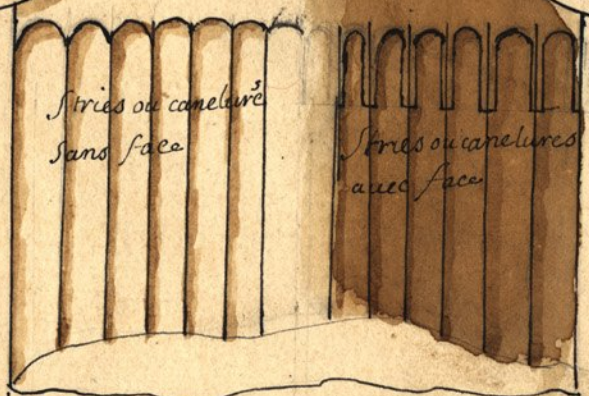 Stries ou canelures
sans face
Stries ou canelures
auec face